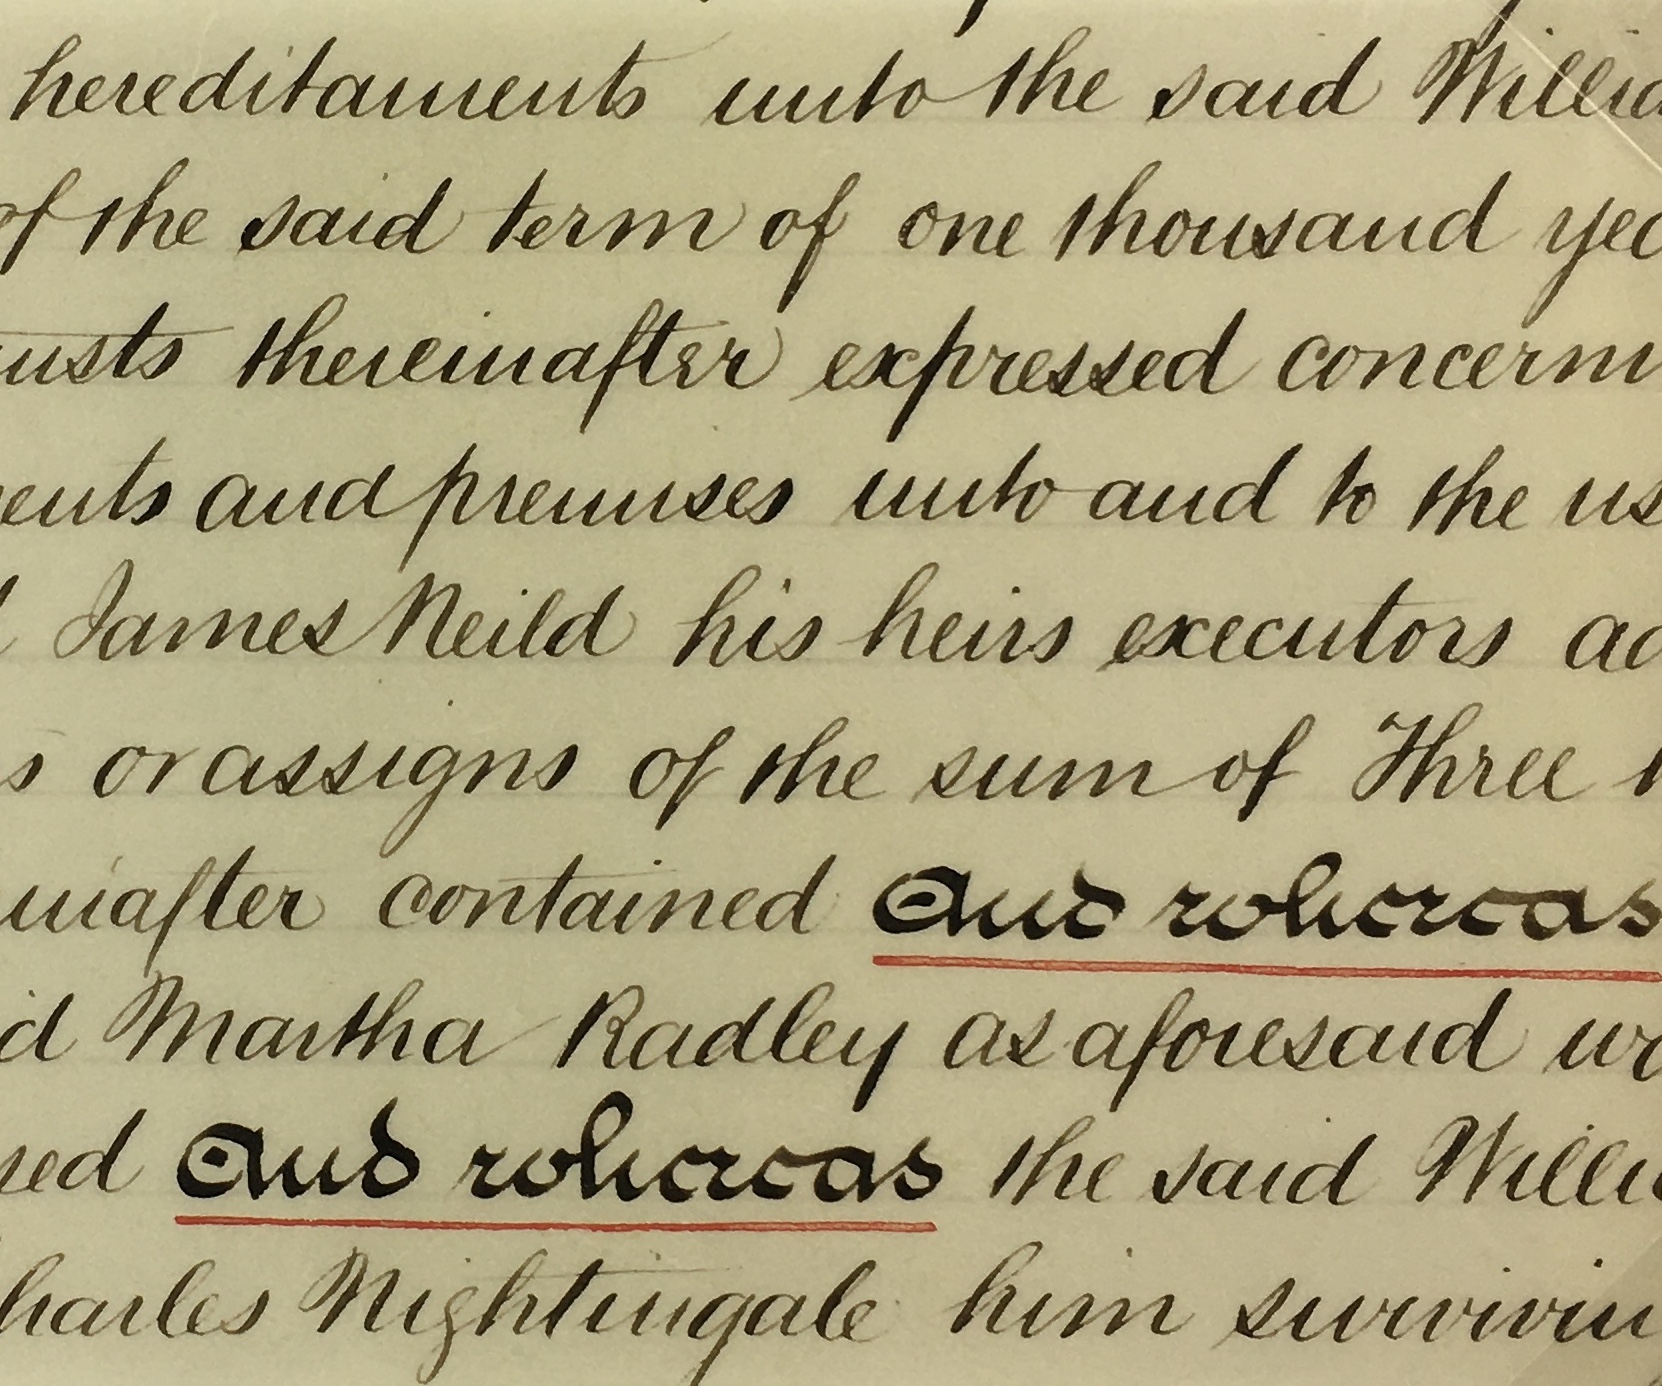 hereditaments unto the said Willia
of the said term of one thousand yea
usts thereinafter expressed concerni
ents and premises unto and to the us
d James Neild his heirs executors ad
s or assigns of the sum of Three h
inafter contained And whereas
id Martha Radley as aforesaid wa
sed And whereas the said Willia
Charles Nightingale him survivin